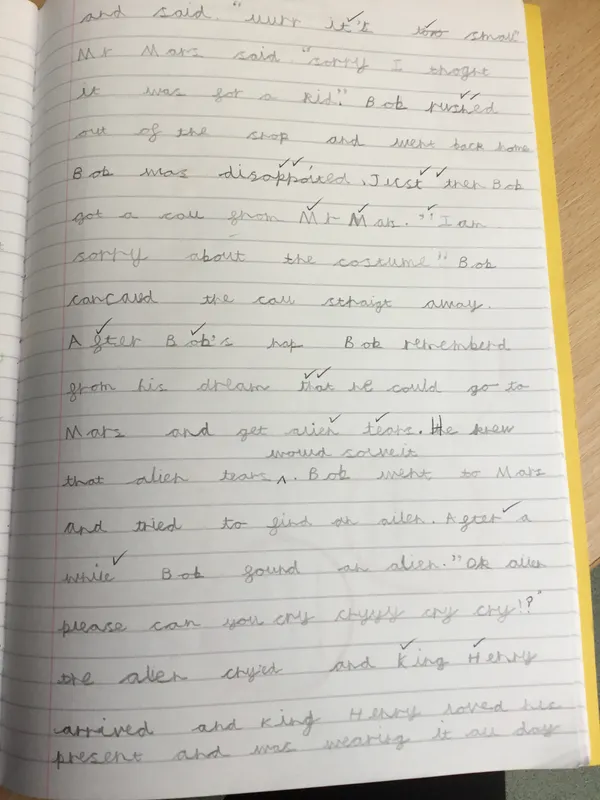 and said. "uurr it's too small"
Mr Mars said. "sorry I thoght
it was for a kid." Bob rushed
out of the shop and went back home
Bob was disappoited. Just then Bob
got a call from Mr Mar. "I am
sorry about the costume" Bob
cancaud the call straigt away.
After Bob's nap Bob rememberd
from his dream that he could go to
Mars and get alien tears. He knew
would solve it
that alien tears ^. Bob went to Mars
and tried to find an ailen. After a
while Bob found an alien. "Ok alien
please can you cry cryyy cry cry!?"
the alien cry'd and King Henry
arrived and King Henry loved his
present and was wearing it all day